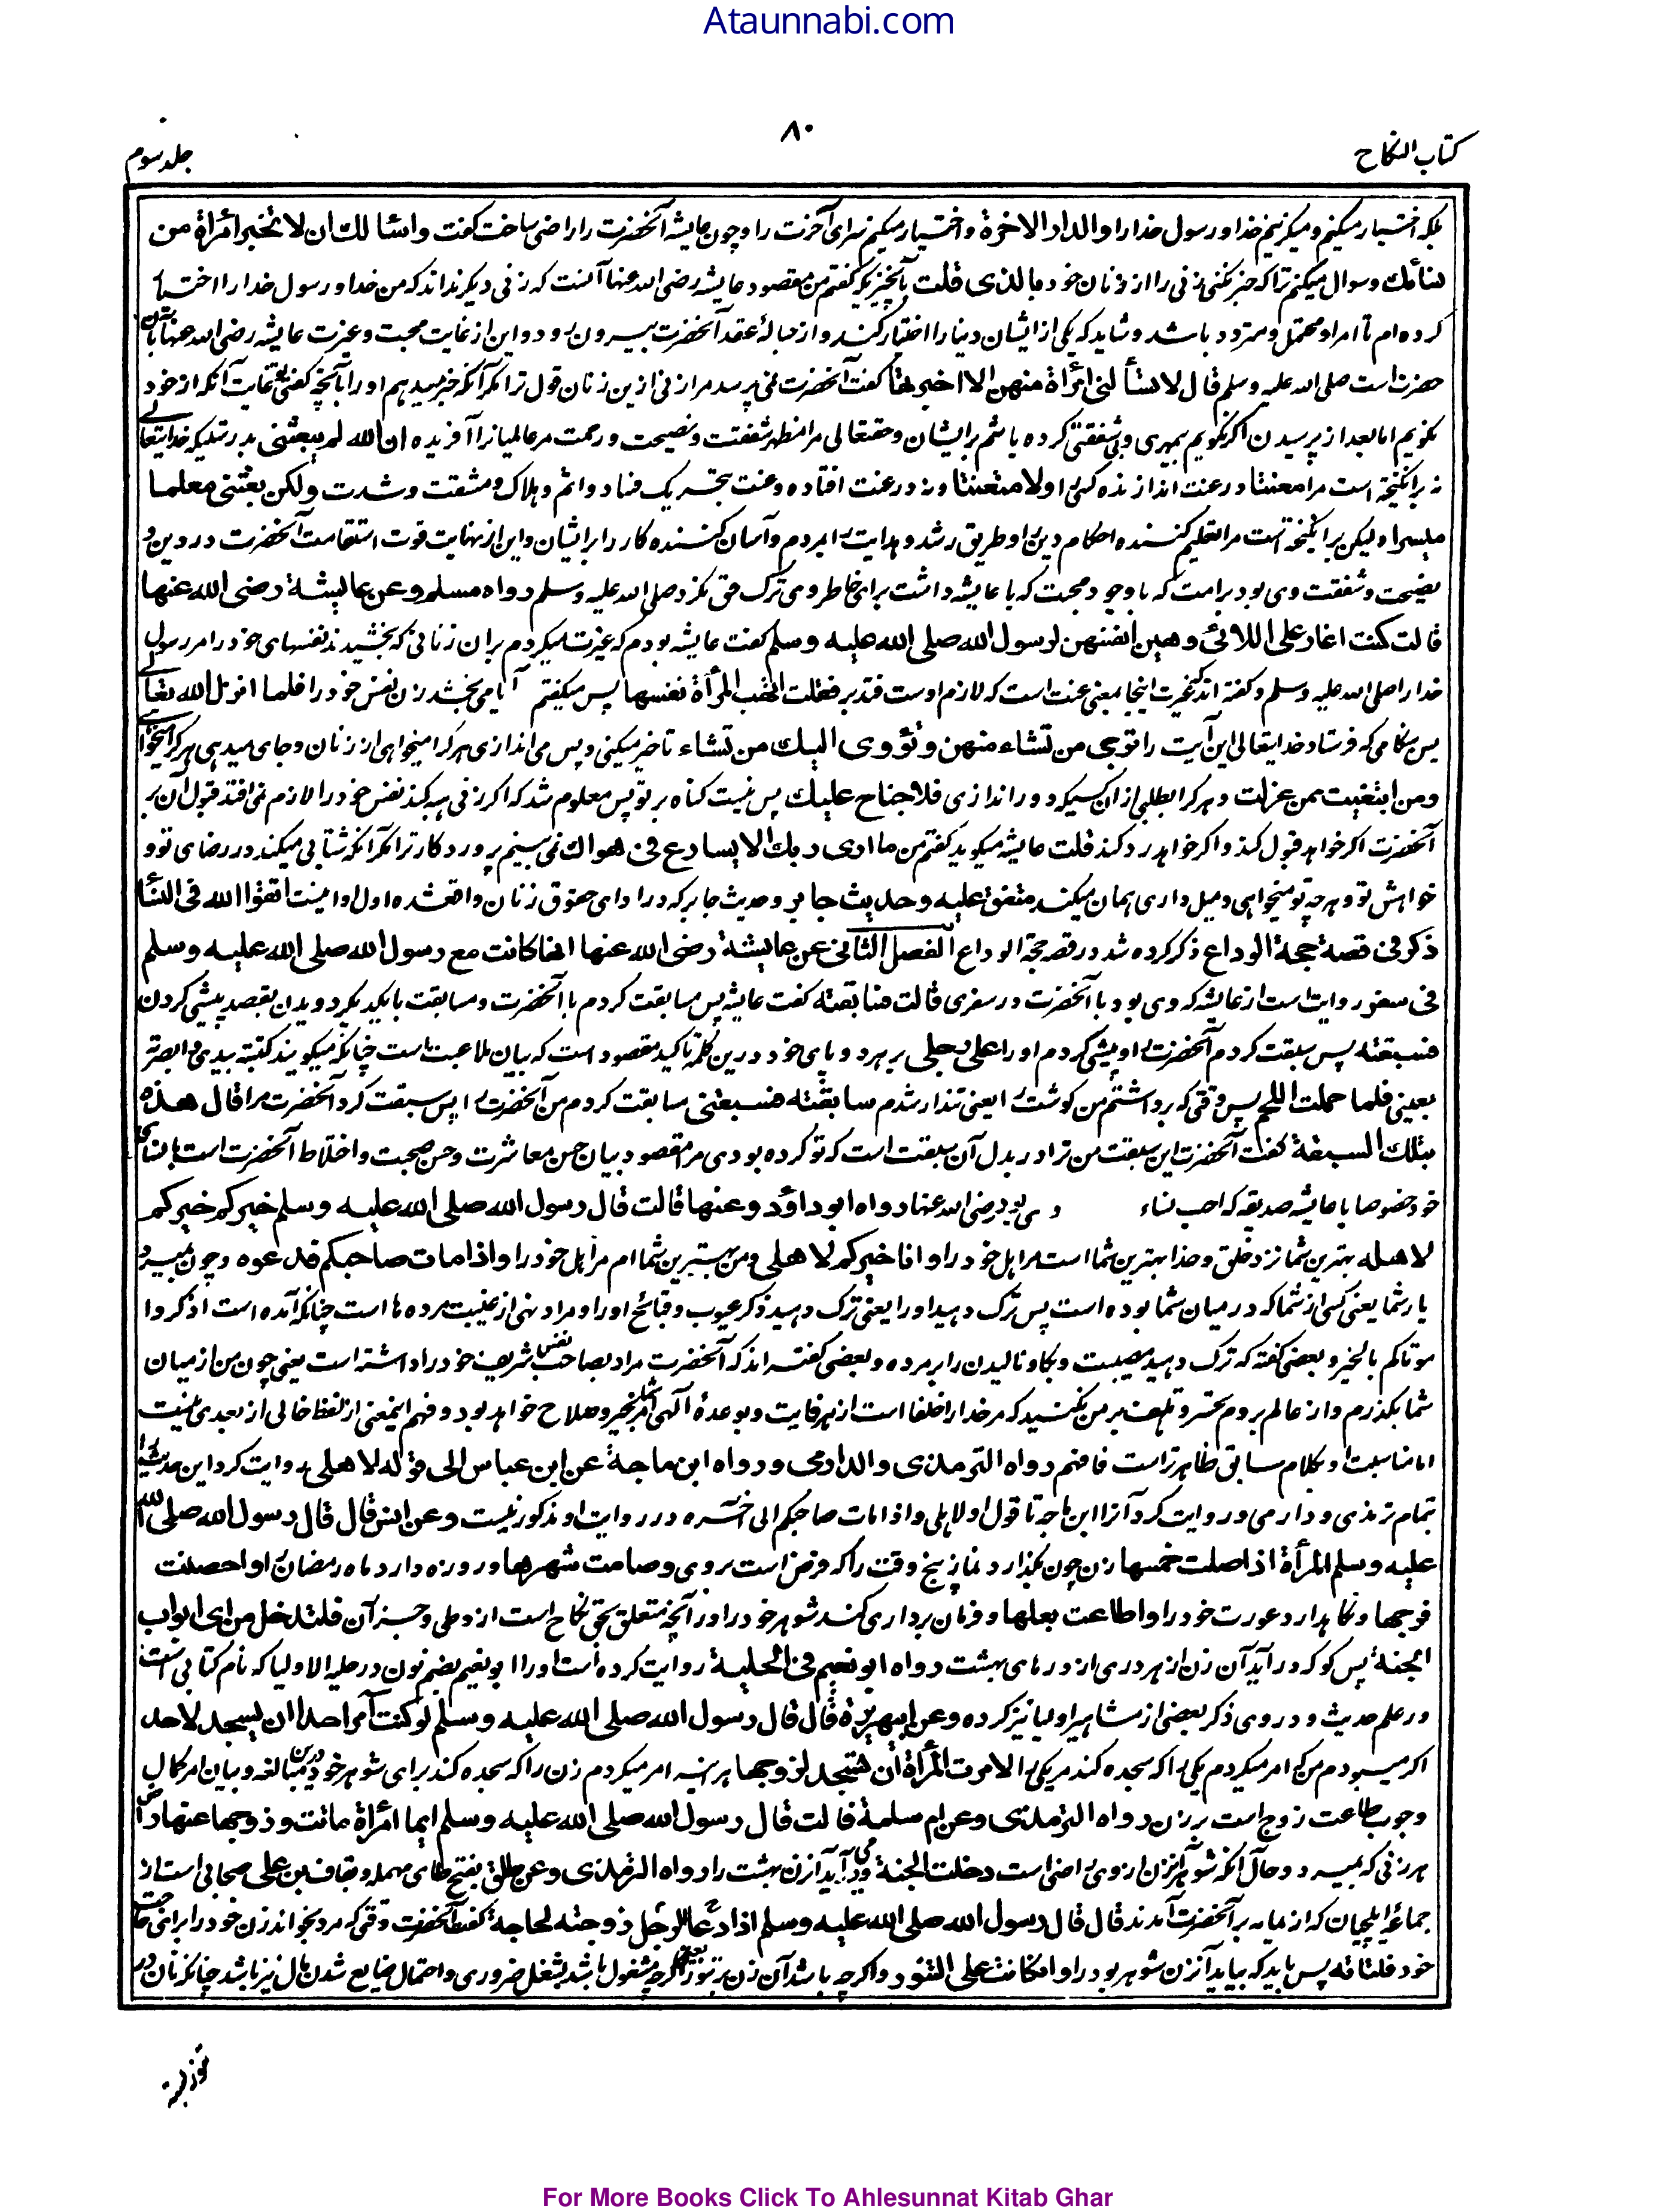 Ataunnabi.com
۸۰
کتاب النکاح
جلد سوم
بلکه اختیار میکنم و میگزینم خدا و رسول خدا را والدار الاخرة و اختیار میکنم سرای آخرت را و چون عایشه آنحضرت را راضی ساخت گفت واسألك ان لا تخبر امرأة من
نسائك و سوال میکنم ترا که خبر نکنی زنی را از زنان خود بالذی قلت بآنچیزیکه گفتم من مقصود عایشه رضی الله عنها آنست که زنی دیگر نداند که من خدا و رسول خدا را اختیار
کرده‌ام تا امر او محتمل و متردد باشد و شاید که یکی از ایشان دنیا را اختیار کند و از حباله عقد آنحضرت بیرون رود و این از غایت محبت و غیرت عایشه رضی الله عنها
حضرت است صلی الله علیه وسلم قال لا تسألنی امرأة منهن الا اخبرتها گفت آنحضرت نمی پرسد مرا زنی ازین زنان قول ترا مگر آنکه خبر میدهم او را بآنچه گفتی غایت آنکه از خود
نگویم اما بعد از پرسیدن اگر نگویم بیمهری و بی شفقتی کرده باشم بر ایشان و حقتعالی مرا مظهر شفقت و نصیحت و رحمت مر عالمیانرا آفریده ان الله لم یبعثنی بدرستیکه خدایتعالی
نه برانگیخته است مرا معنتا در عنت اندازنده کسی را ولا متعنتا و نه در عنت افتاده و عنت بتحریک فساد و اثم و هلاک و مشقت و شدت ولکن بعثنی معلما
میسرا ولیکن برانگیخته است مرا تعلیم کننده احکام دین را و طریق رشد و هدایت را بمردم و آسان کننده کار را بر ایشان و این از نهایت قوت استقامت آنحضرت در دین و
نصیحت و شفقت وی بود بر امت که با وجود محبت که با عایشه داشت برای خاطر وی ترک حق نکرد صلی الله علیه وسلم رواه مسلم وعن عایشة رضی الله عنها
قالت کنت اغار علی اللائی وهبن انفسهن لرسول الله صلی الله علیه وسلم گفت عایشه بودم که غیرت میکردم بر آن زنانی که بخشیدند نفسهای خود را مر رسول
خدا را صلی الله علیه وسلم و گفته اند که غیرت اینجا بمعنی عیب است که لازم اوست فتدبر فقلت اتهب المرأة نفسها پس میگفتم آیا می بخشد زن نفس خود را فلما انزل الله تعالی
پس هنگامی که فرستاد خدایتعالی این آیت را ترجی من تشاء منهن وتؤوی الیك من تشاء تاخیر میکنی و پس می اندازی هر کرا میخواهی از زنان و جای میدهی هر کرا میخواهی
ومن ابتغیت ممن عزلت و هر کرا بطلبی از آن کسیکه دور اندازی فلا جناح علیك پس نیست گناه بر تو پس معلوم شد که اگر زنی هبه کند نفس خود را لازم نمی افتد قبول آن بر
آنحضرت اگر خواهد قبول کند و اگر خواهد رد کند قلت عایشه میگوید گفتم من ما اری ربك الا یسارع فی هواك نمی بینم پروردگار ترا مگر آنکه شتابی میکند در رضای تو و
خواهش تو و هر چه تو میخواهی و میل داری همان میکند متفق علیه وحدیث جابر و حدیث جابر که در ادای حقوق زنان واقع شده اول او اینست اتقوا الله فی النساء
ذکر فی قصة حجة الوداع ذکر کرده شد در قصه حجة الوداع الفصل الثانی عن عایشة رضی الله عنها انها کانت مع رسول الله صلی الله علیه وسلم
فی سفر روایت است از عایشه که وی بود با آنحضرت در سفری قالت فسابقته گفت عایشه پس مسابقت کردم با آنحضرت و مسابقت با یکدیگر دویدن بقصد پیشی کردن
فسبقته پس سبقت کردم آنحضرت را و پیشی کردم او را علی رجلی بر هر دو پای خود درین کلمه تاکید مقصود است که بیان ملاعبت است چنانکه میگویند کتبته بیدی و ابصرته
بعینی فلما حملت اللحم پس وقتی که برداشتم من گوشت را یعنی تندار شدم سابقته فسبقنی مسابقت کردم من آنحضرت را پس سبقت کرد آنحضرت مرا قال هذه
بتلك السبقة گفت آنحضرت این سبقت من ترا در بدل آن سبقت است که تو کرده بودی مرا مقصود بیان حسن معاشرت و حسن صحبت و اختلاط آنحضرت است بانساء
خود خصوصا با عایشه صدیقه که احب نساء وی بود رضی الله عنها رواه ابو داؤد وعنها قالت قال رسول الله صلی الله علیه وسلم خیرکم خیرکم
لاهله بهترین شما نزد خلق و خدا بهترین شما است مر اهل خود را وانا خیرکم لاهلی و من بهترین شما ام مر اهل خود را واذا مات صاحبکم فدعوه و چون بمیرد
یار شما یعنی کسی از شما که در میان شما بوده است پس ترک دهید او را یعنی ترک دهید ذکر عیوب و قبائح او را و مراد نهی از غیبت مرده ها است چنانکه آمده است اذکروا
موتاکم بالخیر و بعضی گفته که ترک دهید مصیبت و بکا و نالیدن را بر مرده و بعضی گفته اند که آنحضرت مراد بصاحب نفس شریف خود را داشته است یعنی چون من از میان
شما بگذرم و از عالم بروم تحسر و تلهف بر من نکنید که مر خدا را خلفا است از هر فایت و بوعده آلهی امر شما بخیر و صلاح خواهد بود و فهم اینمعنی از لفظ خالی از بعدی نیست
اما مناسبت او بکلام سابق ظاهرتر است فافهم رواه الترمذی والدارمی ورواه ابن ماجة عن ابن عباس الی قوله لاهلی روایت کرد این حدیث را
تمام ترمذی و دارمی و روایت کرد آنرا ابن ماجه تا قول او لاهلی و اذا مات صاحبکم الی آخره در روایت او مذکور نیست وعن انس قال قال رسول الله صلی الله
علیه وسلم المرأة اذا صلت خمسها زن چون بگذارد نماز پنج وقت را که فرض است بر وی وصامت شهرها و روزه دارد ماه رمضان را واحصنت
فرجها و نگاهدارد عورت خود را واطاعت بعلها و فرمان برداری کند شوهر خود را در آنچه متعلق بحق نکاح است از وطی و جز آن فلتدخل من ای ابواب
الجنة پس گو که در آید آن زن از هر دری از درهای بهشت رواه ابو نعیم فی الحلیة روایت کرده است او را ابو نعیم بضم نون در حلیة الاولیا که نام کتابی است
در علم حدیث و در وی ذکر بعضی از مشاهیر اولیا نیز کرده وعن ابی هریرة قال قال رسول الله صلی الله علیه وسلم لو کنت آمر احدا ان یسجد لاحد
اگر میبودم من که امر میکردم یکی را که سجده کند مر یکی را لامرت المرأة ان تسجد لزوجها هر آینه امر میکردم زن را که سجده کند برای شوهر خود درین مبالغه و بیان امر کمال
وجوب طاعت زوج است بر زن رواه الترمذی وعن ام سلمة قالت قال رسول الله صلی الله علیه وسلم ایما امرأة ماتت وزوجها عنها راض
هر زنی که بمیرد و حال آنکه شوهر آنزن از وی راضی است دخلت الجنة می در آید آنزن بهشت را رواه الترمذی وعن طلق بفتح طای مهمله و بقاف بن علی صحابی است از
جماعه ایلچیان که از یمامه بر آنحضرت آمدند قال قال رسول الله صلی الله علیه وسلم اذا دعا الرجل زوجته لحاجته گفت آنحضرت وقتی که مرد بخواند زن خود را برای حاجت
خود فلتاته پس باید که بیاید آنزن شوهر خود را وان کانت علی التنور و اگر چه باشد آن زن بر تنور یعنی اگرچه مشغول باشد بشغل ضروری و احتمال ضایع شدن مال نیز باشد چنانکه نان در
For More Books Click To Ahlesunnat Kitab Ghar